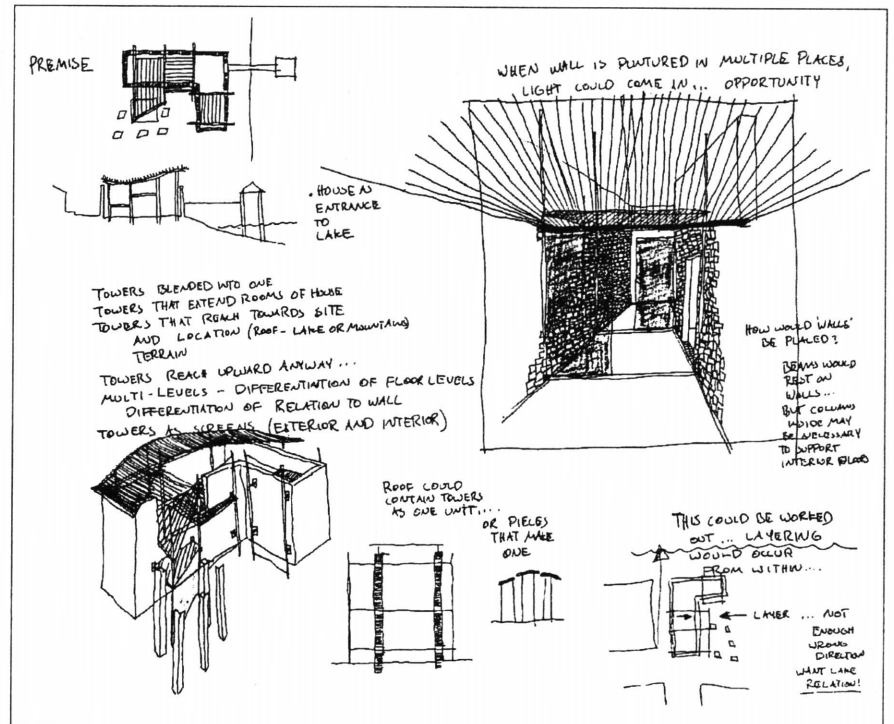 PREMISE
WHEN WALL IS PUNTURED IN MULTIPLE PLACES,
LIGHT COULD COME IN... OPPORTUNITY
. HOUSE AS
ENTRANCE
TO
LAKE
TOWERS BLENDED INTO ONE
TOWERS THAT EXTEND ROOMS OF HOUSE
TOWERS THAT REACH TOWARDS SITE
AND LOCATION (ROOF - LAKE OR MOUNTAINS)
TERRAIN
TOWERS REACH UPWARD ANYWAY...
MULTI-LEVELS - DIFFERENTIATION OF FLOOR LEVELS
DIFFERENTIATION OF RELATION TO WALL
TOWERS AS SCREENS (EXTERIOR AND INTERIOR)
HOW WOULD 'WALLS'
BE PLACED?
BEAMS WOULD
REST ON
WALLS...
BUT COLUMNS
INSIDE MAY
BE NECESSARY
TO SUPPORT
INTERIOR
ROOF COULD
CONTAIN TOWERS
AS ONE UNIT....
OR PIECES
THAT MAKE
ONE
THIS COULD BE WORKED
OUT ... LAYERING
WOULD OCCUR
FROM WITHIN....
LAYER ... NOT
ENOUGH
WRONG
DIRECTION
WANT LAKE
RELATION!